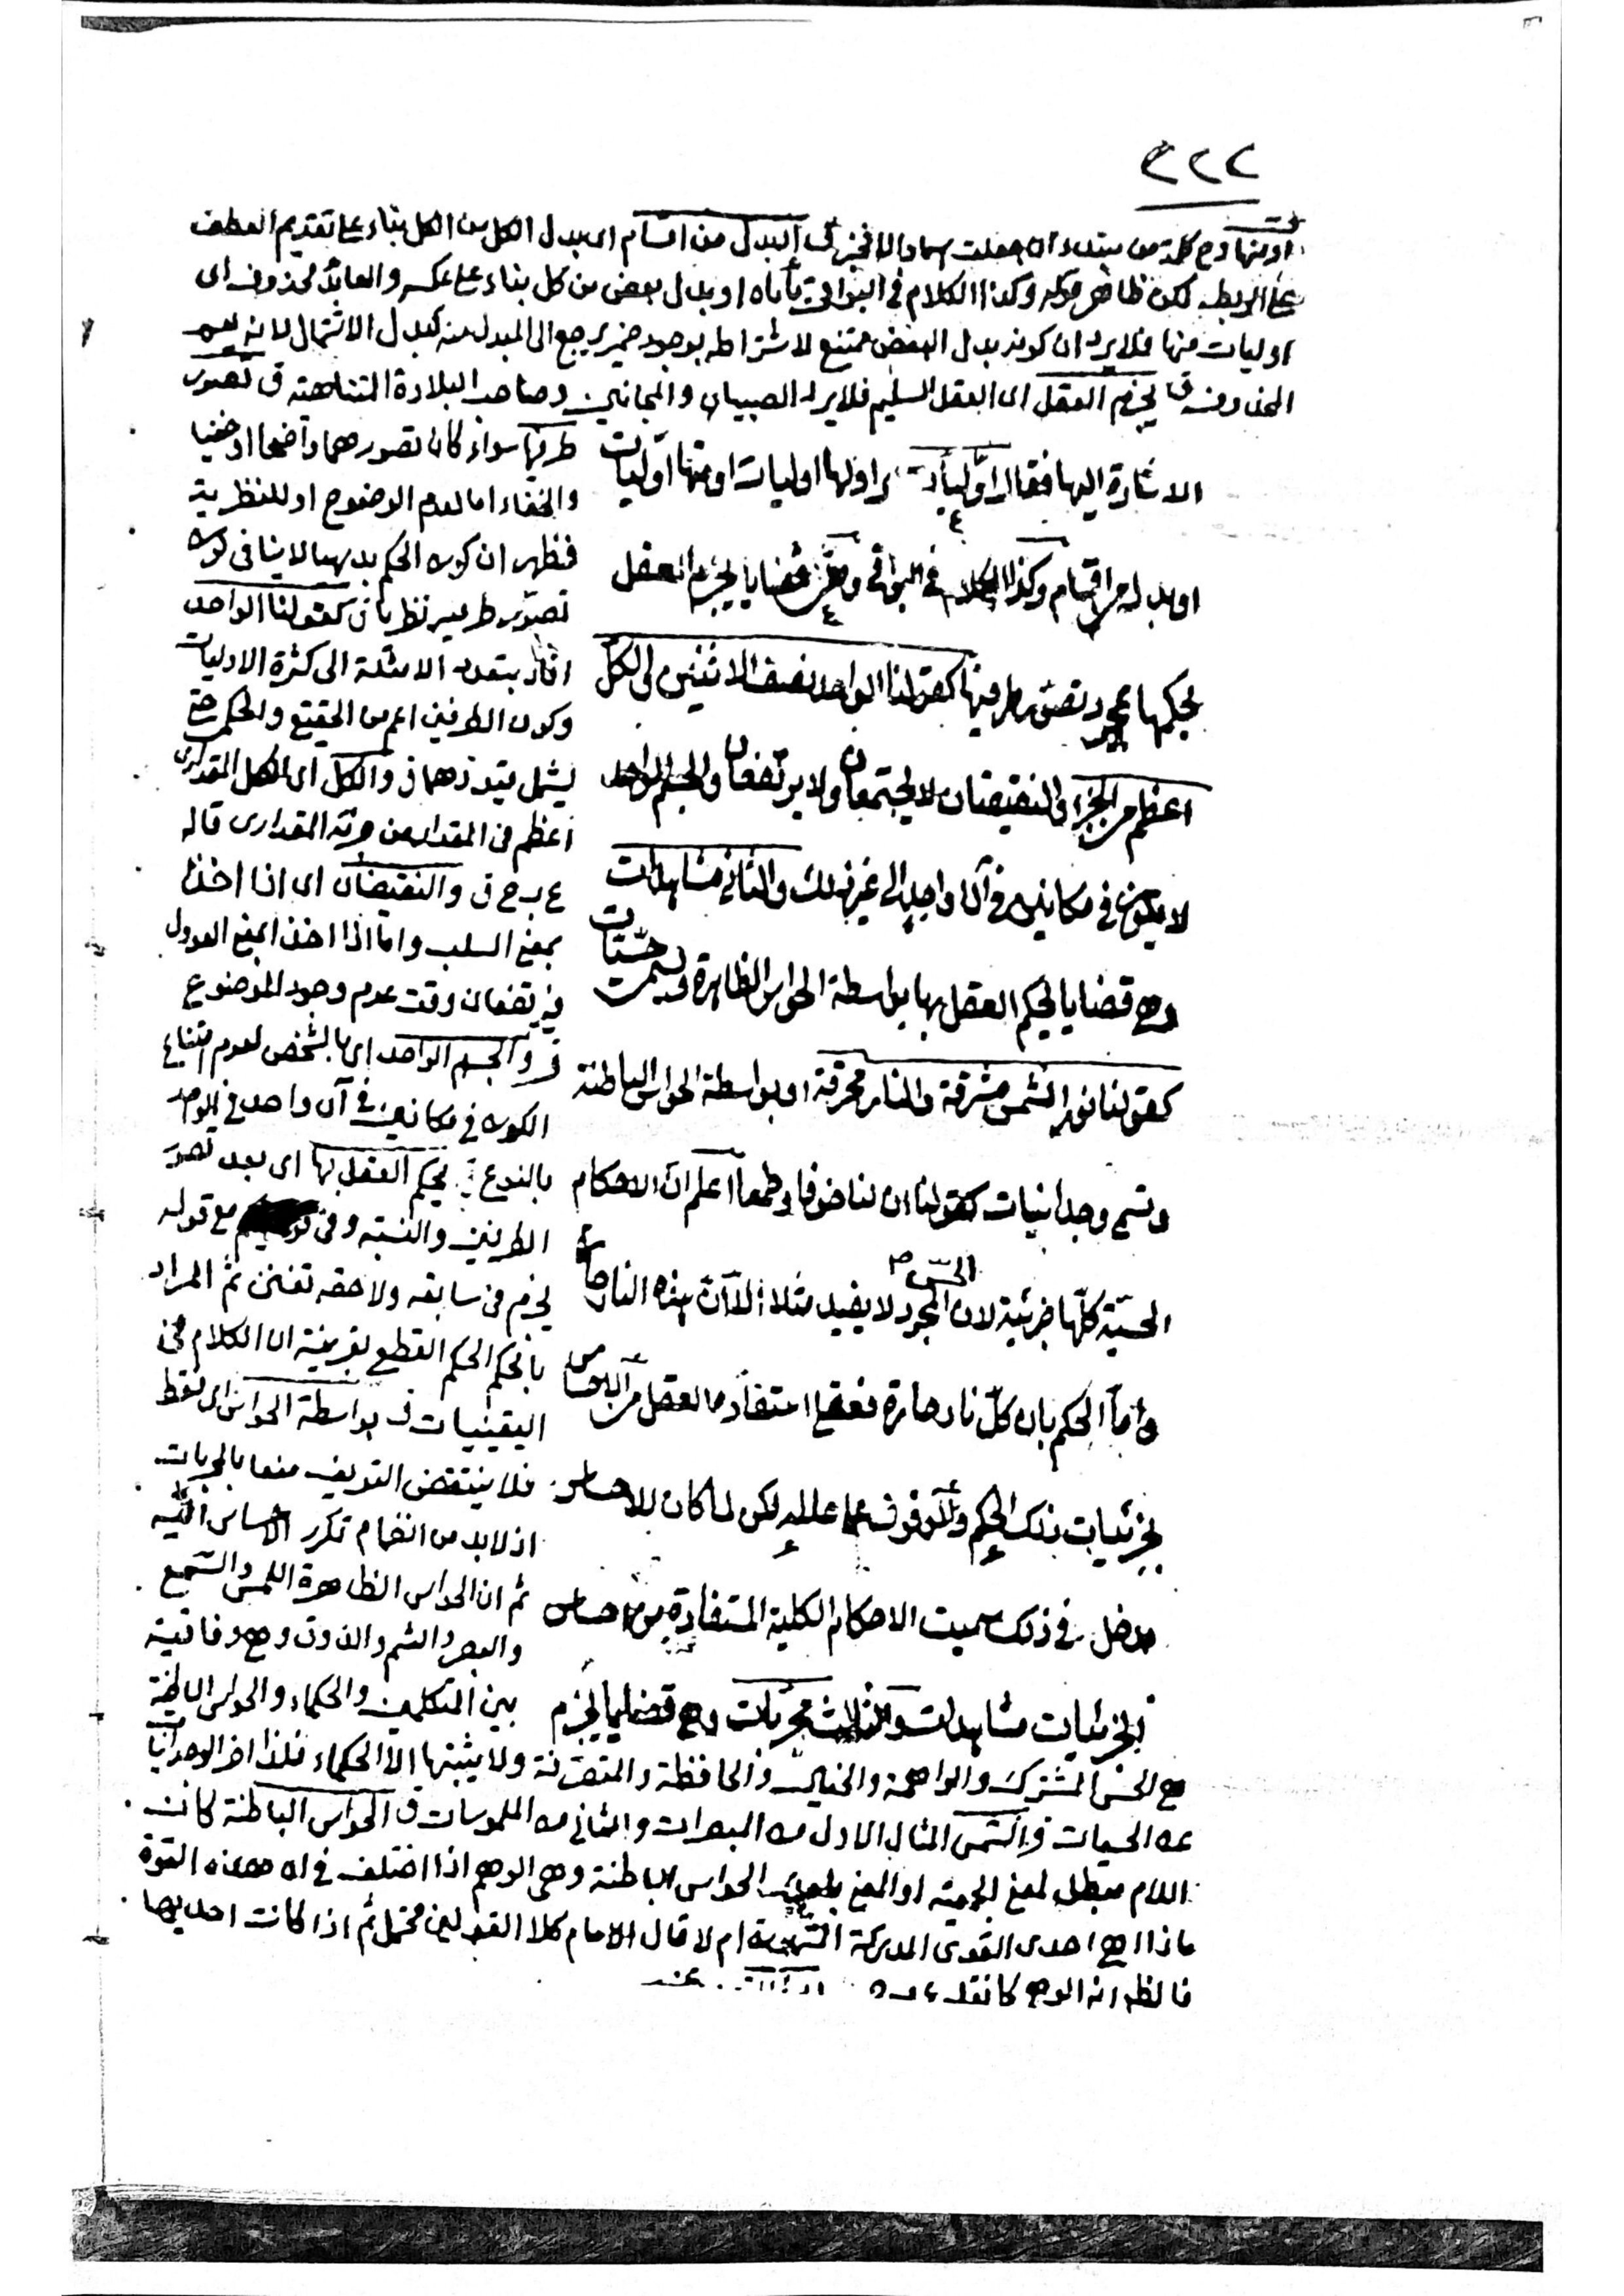 ٢٢٢
او منها وح كلمة من مبتدء ان جعلت اسما والا فخبر ق البدل من اقسام اى بدل الكل من الكل بناء على تقديم العطف
على الربط لكن ظاهر قوله وكذا الكلام فى البواقى يأباه او بدل بعض من كل بناء على عكسه والعائد محذوف اى
اوليات منها فلا يرد ان كونه بدل البعض ممتنع لاشتراطه بوجود ضمير يرجع الى المبدل منه كبدل الاشتمال لانه
المحذوف ق يجزم العقل اى العقل السليم فلا يرد الصبيان والمجانين وصاحب البلادة المتناهية ق تصور
الاشارة اليها فقال اوليات اى اولها اوليات او منها اوليات
او بدل من اقسام وكذا الكلام فى البواقى وهى قضايا يجزم العقل
بحكمها بمجرد تصور طرفيها كقولنا الواحد نصف الاثنين والكل
اعظم من الجزء والنقيضان لا يجتمعان ولا يرتفعان والجسم الواحد
لا يكون فى مكانين فى آن واحد الى غير ذلك والثانى مشاهدات
وهى قضايا يحكم العقل بها بواسطة الحواس الظاهرة وتسمى حسيات
كقولنا نور الشمس مشرقة والنار محرقة او بواسطة الحواس الباطنة
وتسمى وجدانيات كقولنا ان لنا خوفا وطمعا اعلم ان الاحكام
الحسية كلها جزئية لان الحس المجرد لا يفيد مثلا الا ان هذه النار حارة
واما الحكم بان كل نار حارة فعقلى استفاده العقل من الاحساس
بجزئيات ذلك الحكم والوقوف على علله لكن لما كان للاحساس
مدخل فى ذلك سميت الاحكام الكلية المستفادة من احساس
الجزئيات مشاهدات والثالث مجربات وهى قضايا يجزم
طرفيها سواء كان تصورهما واضحا او خفيا
والخفاء اما لعدم الوضوح او للنظرية
فظهر ان كون الحكم بديهيا لا ينافى كون
تصور طرفيه نظريا ق كقولنا الواحد
افاد بتعدد الامثلة الى كثرة الاوليات
وكون الطرفين اعم من الحقيقى والحكمى حتى
يشمل قيودهما ق والكل اى الكل المقدارى
اعظم فى المقدار من جزئه المقدارى قاله
ع ب ح ق والنقيضان اى اذا اخذا
بمعنى السلب واما اذا اخذا بمعنى العدول
فيرتفعان وقت عدم وجود الموضوع
ق والجسم الواحد اى بالشخص لعدم امتناع
الكون فى مكانين فى آن واحد فى الواحد
بالنوع ق يحكم العقل بها اى بعد تصور
الطرفين والنسبة وفى مع قوله
يجزم فى سابقه ولاحقه تفنن ثم المراد
بالحكم الحكم القطعى بقرينة ان الكلام فى
اليقينيات ق بواسطة الحواس اى فقط
فلا ينتقض التعريف منعا بالمجربات
اذ لا بد من انضمام تكرر الاحساس اليه
ثم ان الحواس الظاهرة اللمس والسمع
والبصر والشم والذوق وهى وفاقية
بين المتكلمين والحكماء والحواس الباطنة
هى الحس المشترك والواهمة والخيال والحافظة والمتصرفة ولا يثبتها الا الحكماء فلذا اخر الوجدانيات
عن الحسيات ق الشمس المثال الاول من المبصرات والثانى من الملموسات ق الحواس الباطنة كانت
اللام مبطل لمعنى الجمعية او المعنى الحواس الباطنة وهى الوهم اذا اختلف فى ان هذه القوة
ماذا هى احدى القوى المدركة ام لا قال الامام كلا القولين محتمل ثم اذا كانت احديها
فالظاهر انه الوهم كما نقله